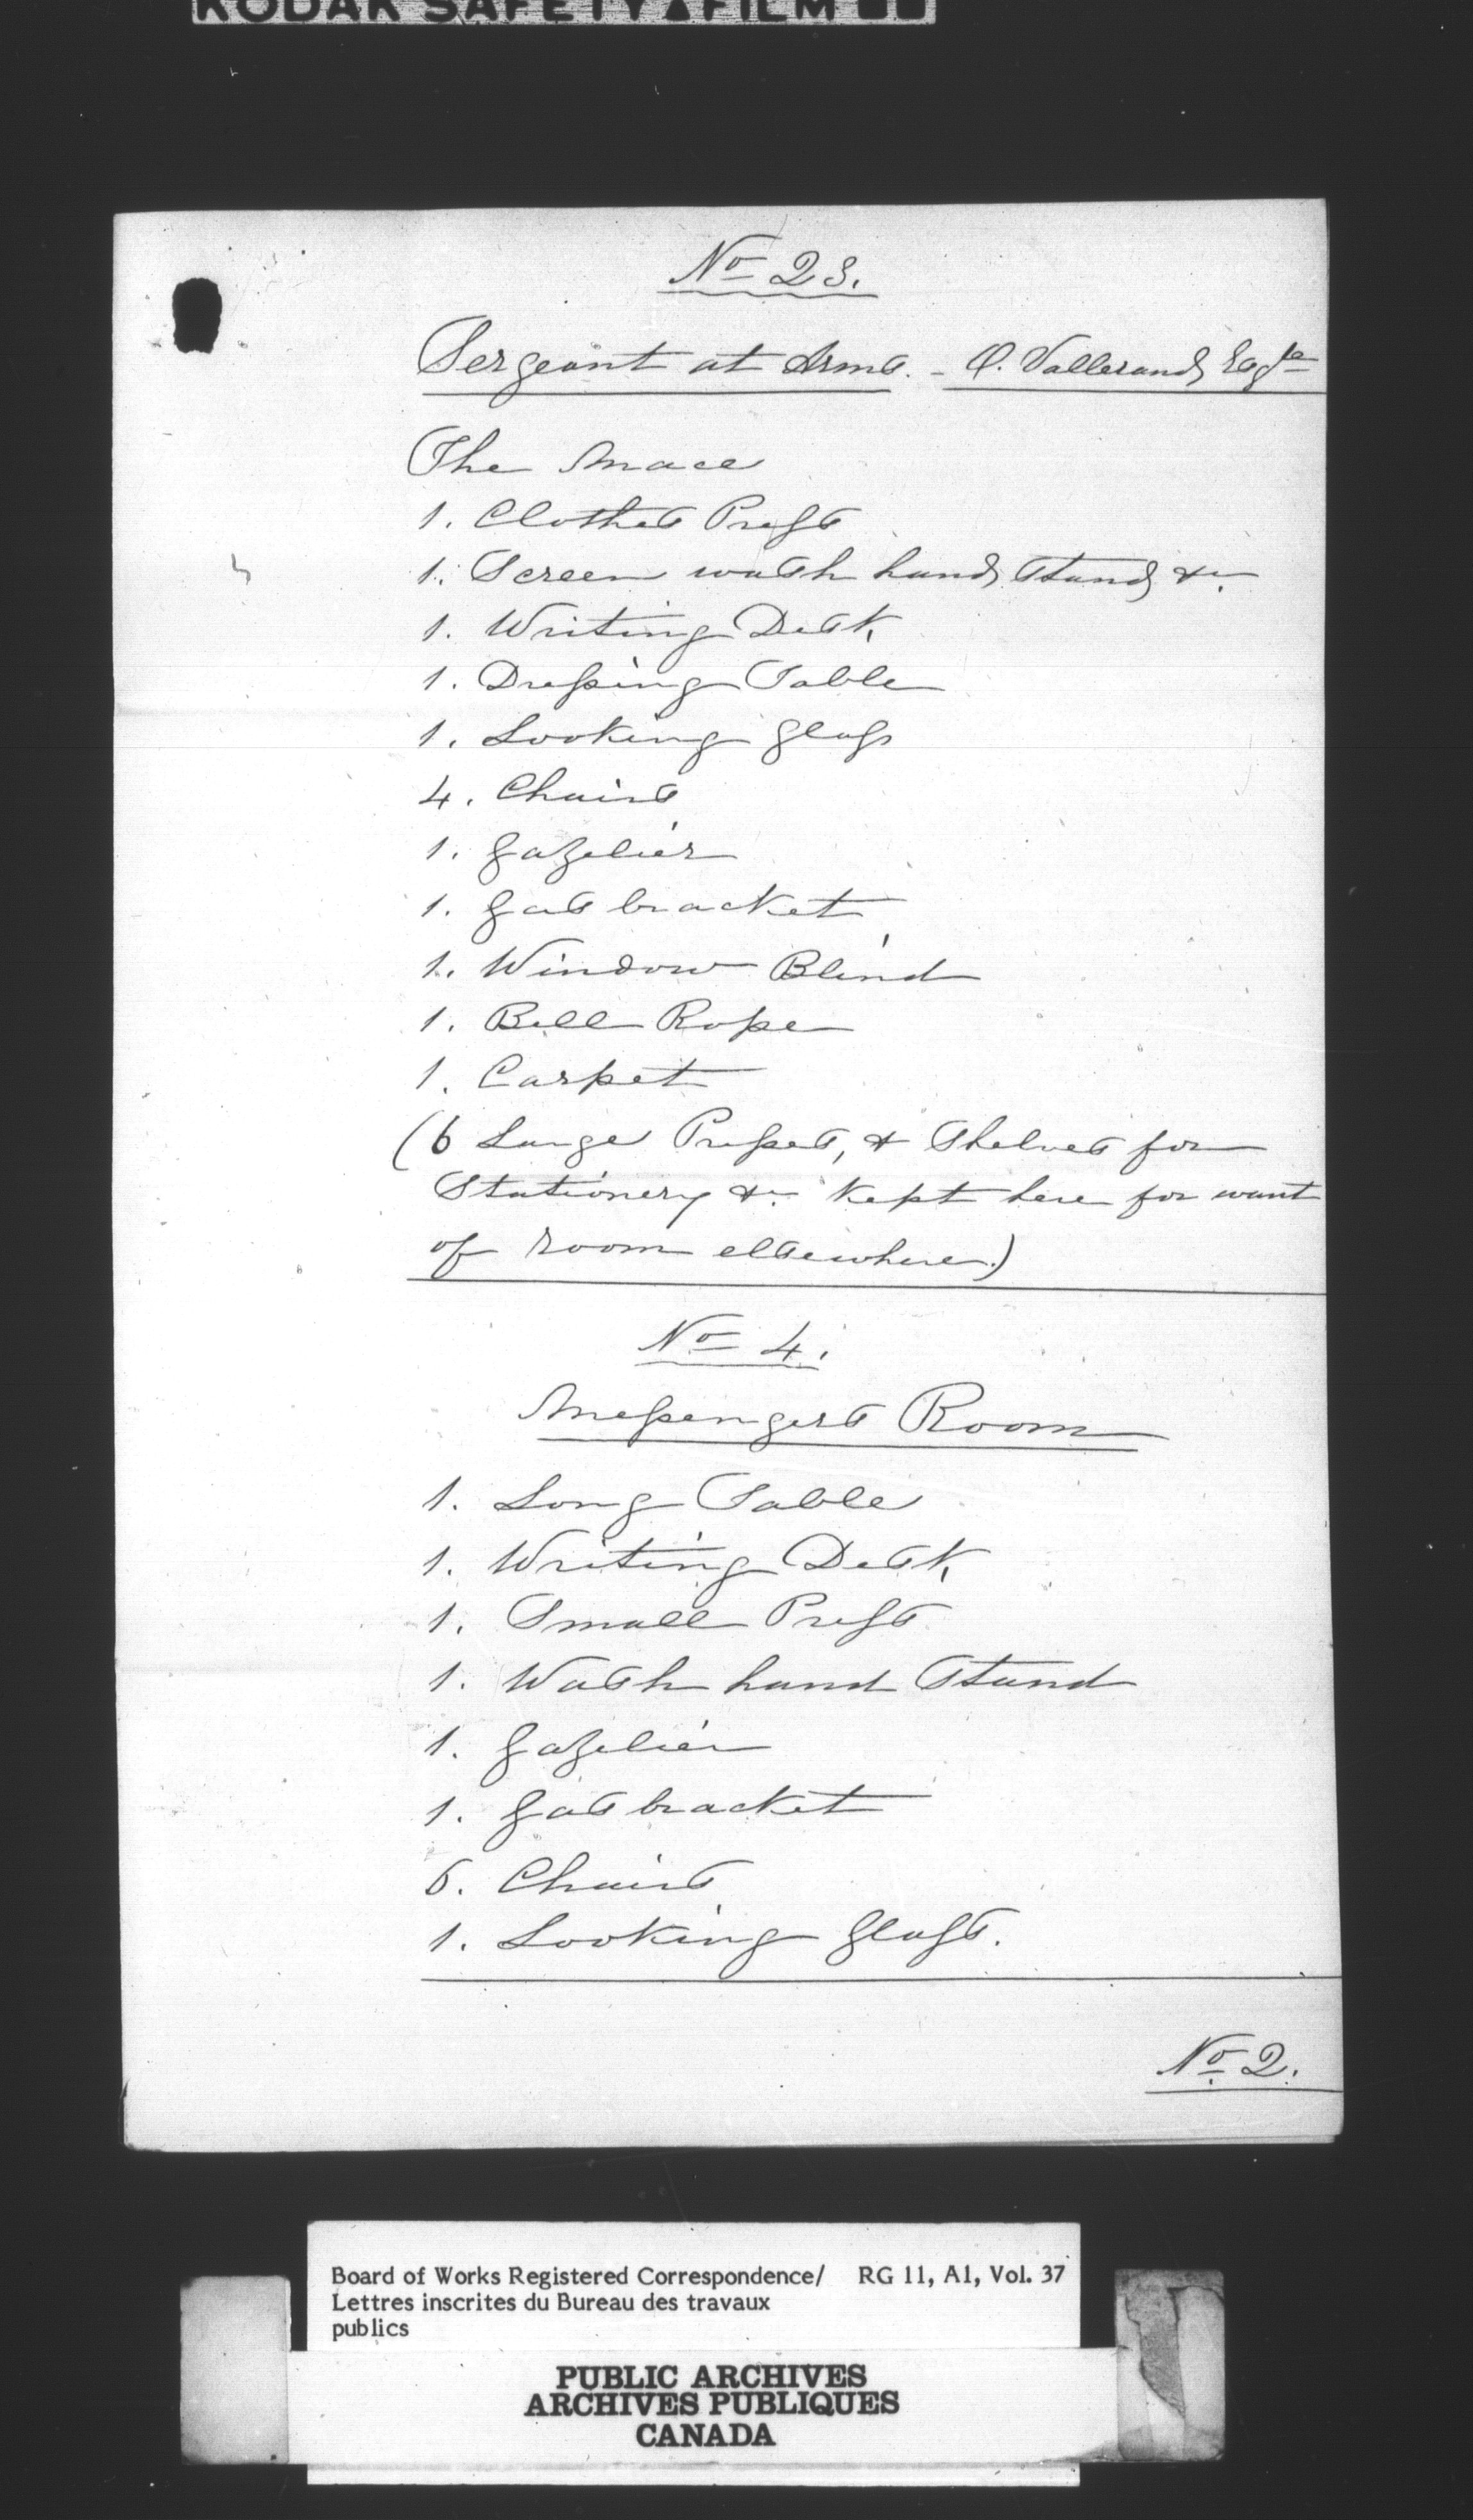 KODAK SAFETY FILM
No 23.
Sergeant at Arms. - O. Vallerand, Esqre
The Mace
1. Clothes Press
1. Screen wash hand stand &c.
1. Writing Desk,
1. Dressing Table
1. Looking glass
4. Chairs
1. gazelier
1. gas bracket
1. Window Blind
1. Bell Rope
1. Carpet
(6 Large Presses, & Shelves for
Stationery &c. Kept here for want
of room elsewhere.)
No 4.
Messengers Room
1. Long Table
1. Writing Desk,
1. Small Press
1. Wash hand Stand
1. gazelier
1. gas bracket
6. Chairs
1. Looking glass.
No 2.
Board of Works Registered Correspondence/ RG 11, A1, Vol. 37
Lettres inscrites du Bureau des travaux
publics
PUBLIC ARCHIVES
ARCHIVES PUBLIQUES
CANADA